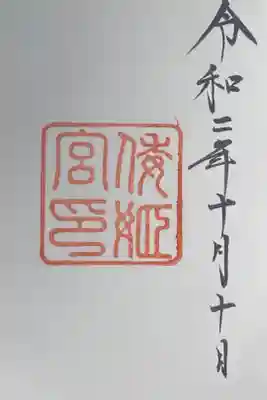 令和二年十月十日
倭姫
宮印